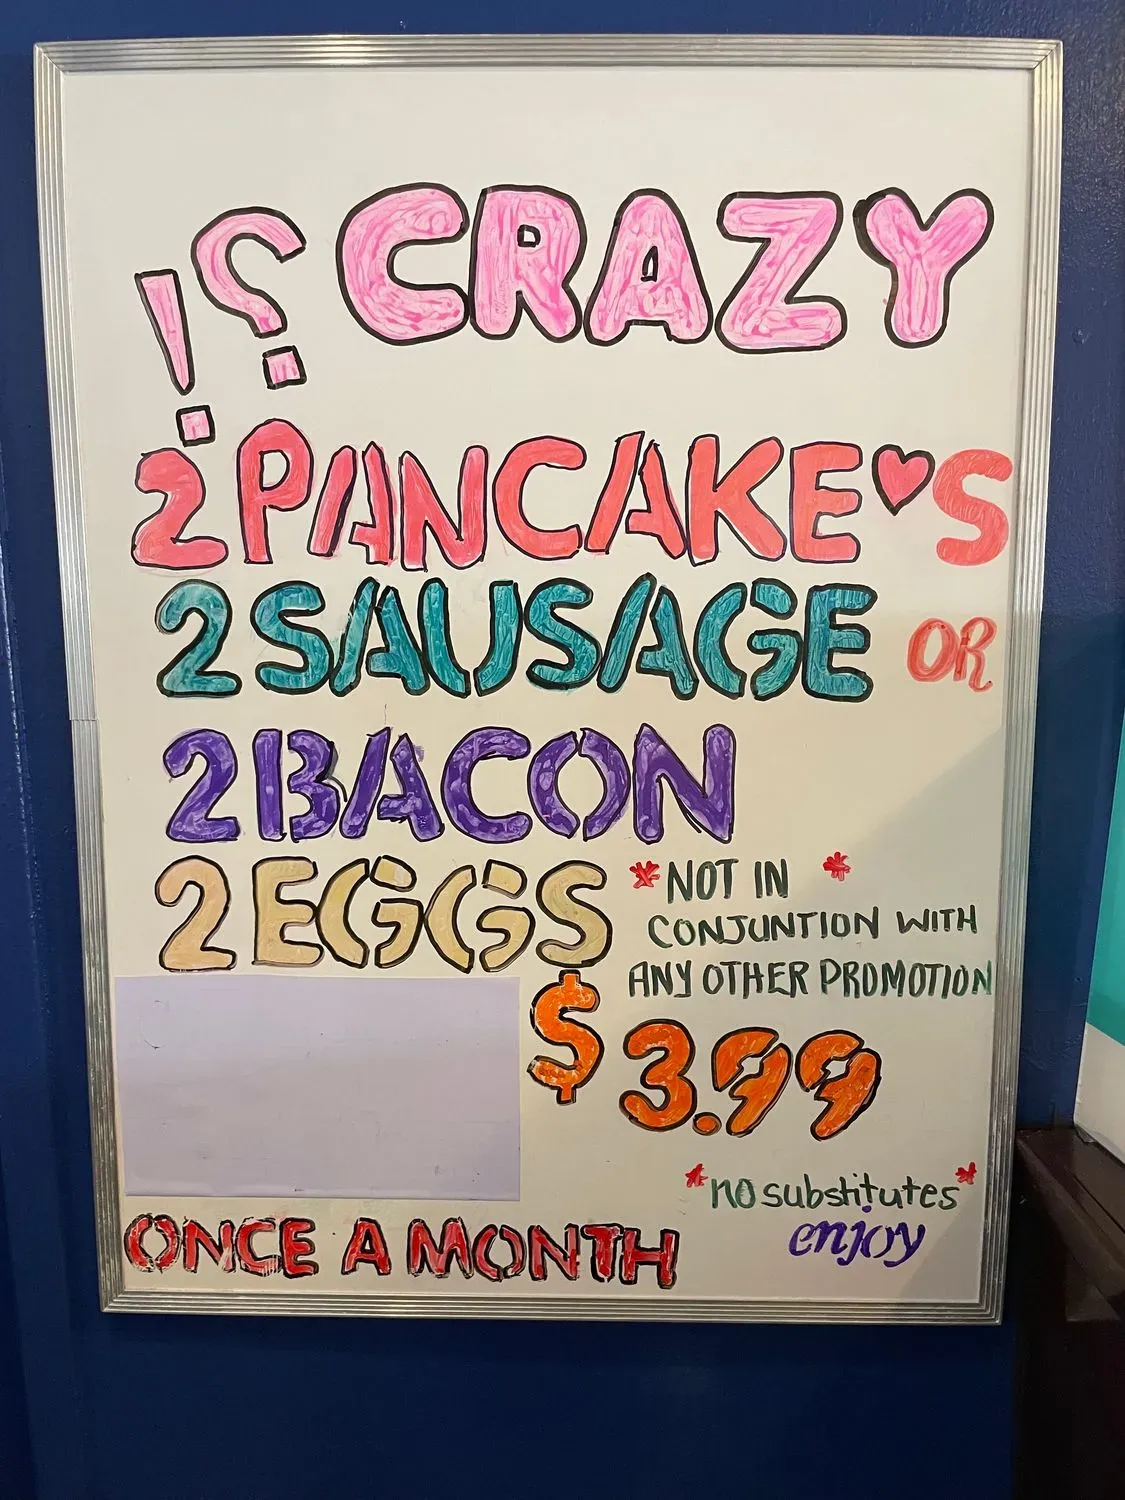 !? CRAZY
2 PANCAKE'S
2 SAUSAGE OR
2 BACON
2 EGGS
*NOT IN *
CONJUNTION WITH
ANY OTHER PROMOTION
$3.99
*no substitutes*
enjoy
ONCE A MONTH